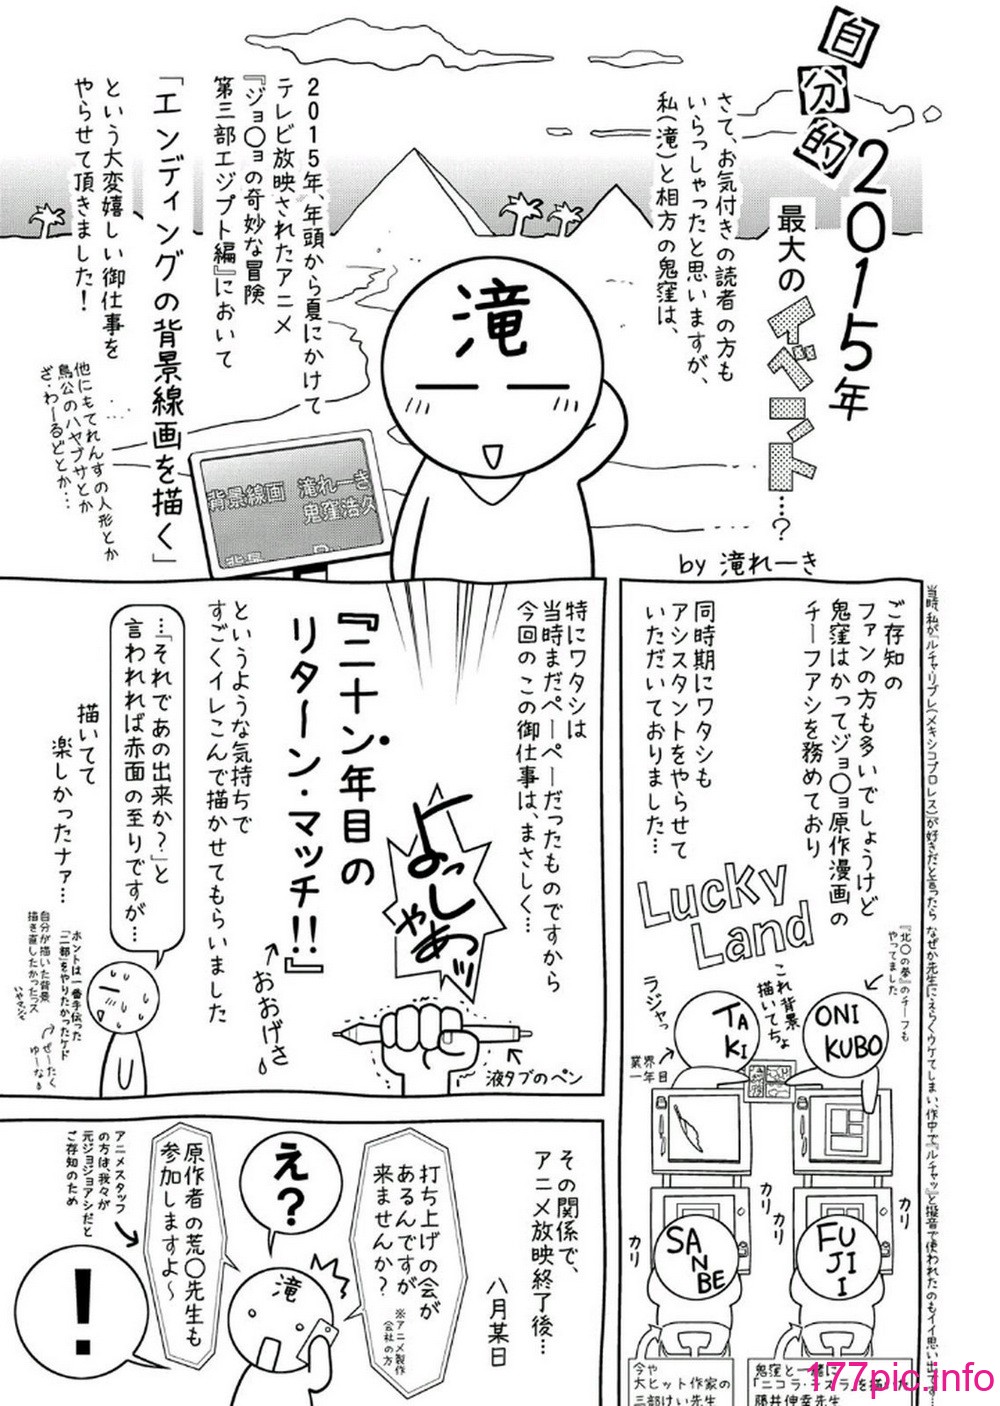 自分的
2015年
最大の
イベント…?
by 滝れーき
さて、お気付きの読者の方も
いらっしゃったと思いますが、
私(滝)と相方の鬼窪は、
2015年、年頭から夏にかけて
テレビ放映されたアニメ
『ジョ〇ョの奇妙な冒険
第三部エジプト編』において
「エンディングの背景線画を描く」
という大変嬉しい御仕事を
やらせて頂きました!
他にもてれんすの人形とか
鳥公のハヤブサとか
ざ・わーるどとか…
滝
背景線画 滝れーき
鬼窪浩久
当時、私が「ルチャ・リブレ(メキシコプロレス)が好きだと言ったら なぜか先生にえらくウケてしまい、作中で『ルチャッ』と擬音で使われたのもイイ思い出です…
ご存知の
ファンの方も多いでしょうけど
鬼窪はかつてジョ〇ョ原作漫画の
チーフアシを務めており
同時期にワタシも
アシスタントをやらせて
いただいておりました…
Lucky
Land
『北〇の拳』のチーフも
やってました
これ背景
描いてちょ
ラジャっ
業界
一年目
ONI
KUBO
TA
KI
カリ
カリ
カリ
カリ
FU
JI
I
SA
N
BE
鬼窪と一緒に
「ニコラ・テスラ」を描いた
藤井伸幸先生
今や
大ヒット作家の
三部けい先生
特にワタシは
当時まだペーペーだったものですから
今回のこの御仕事は、まさしく…
『二十ン年目の
リターン・マッチ!!』
よっしゃあッ
液タブのペン
おおげさ
というような気持ちで
すごくイレこんで描かせてもらいました
…「それであの出来か?」と
言われれば赤面の至りですが…
描いてて
楽しかったナァ…
ホントは一番手伝った
「二部」をやりたかったケド
自分が描いた背景
描き直したかったっス
いやマジで
ぜーたく
ゆーな
その関係で、
アニメ放映終了後…
八月某日
打ち上げの会が
あるんですが
来ませんか?
※アニメ製作
会社の方
え?
滝
原作者の荒〇先生も
参加しますよ〜
アニメスタッフ
の方は、我々が
元ジョジョアシだと
ご存知のため
!
177pic.info